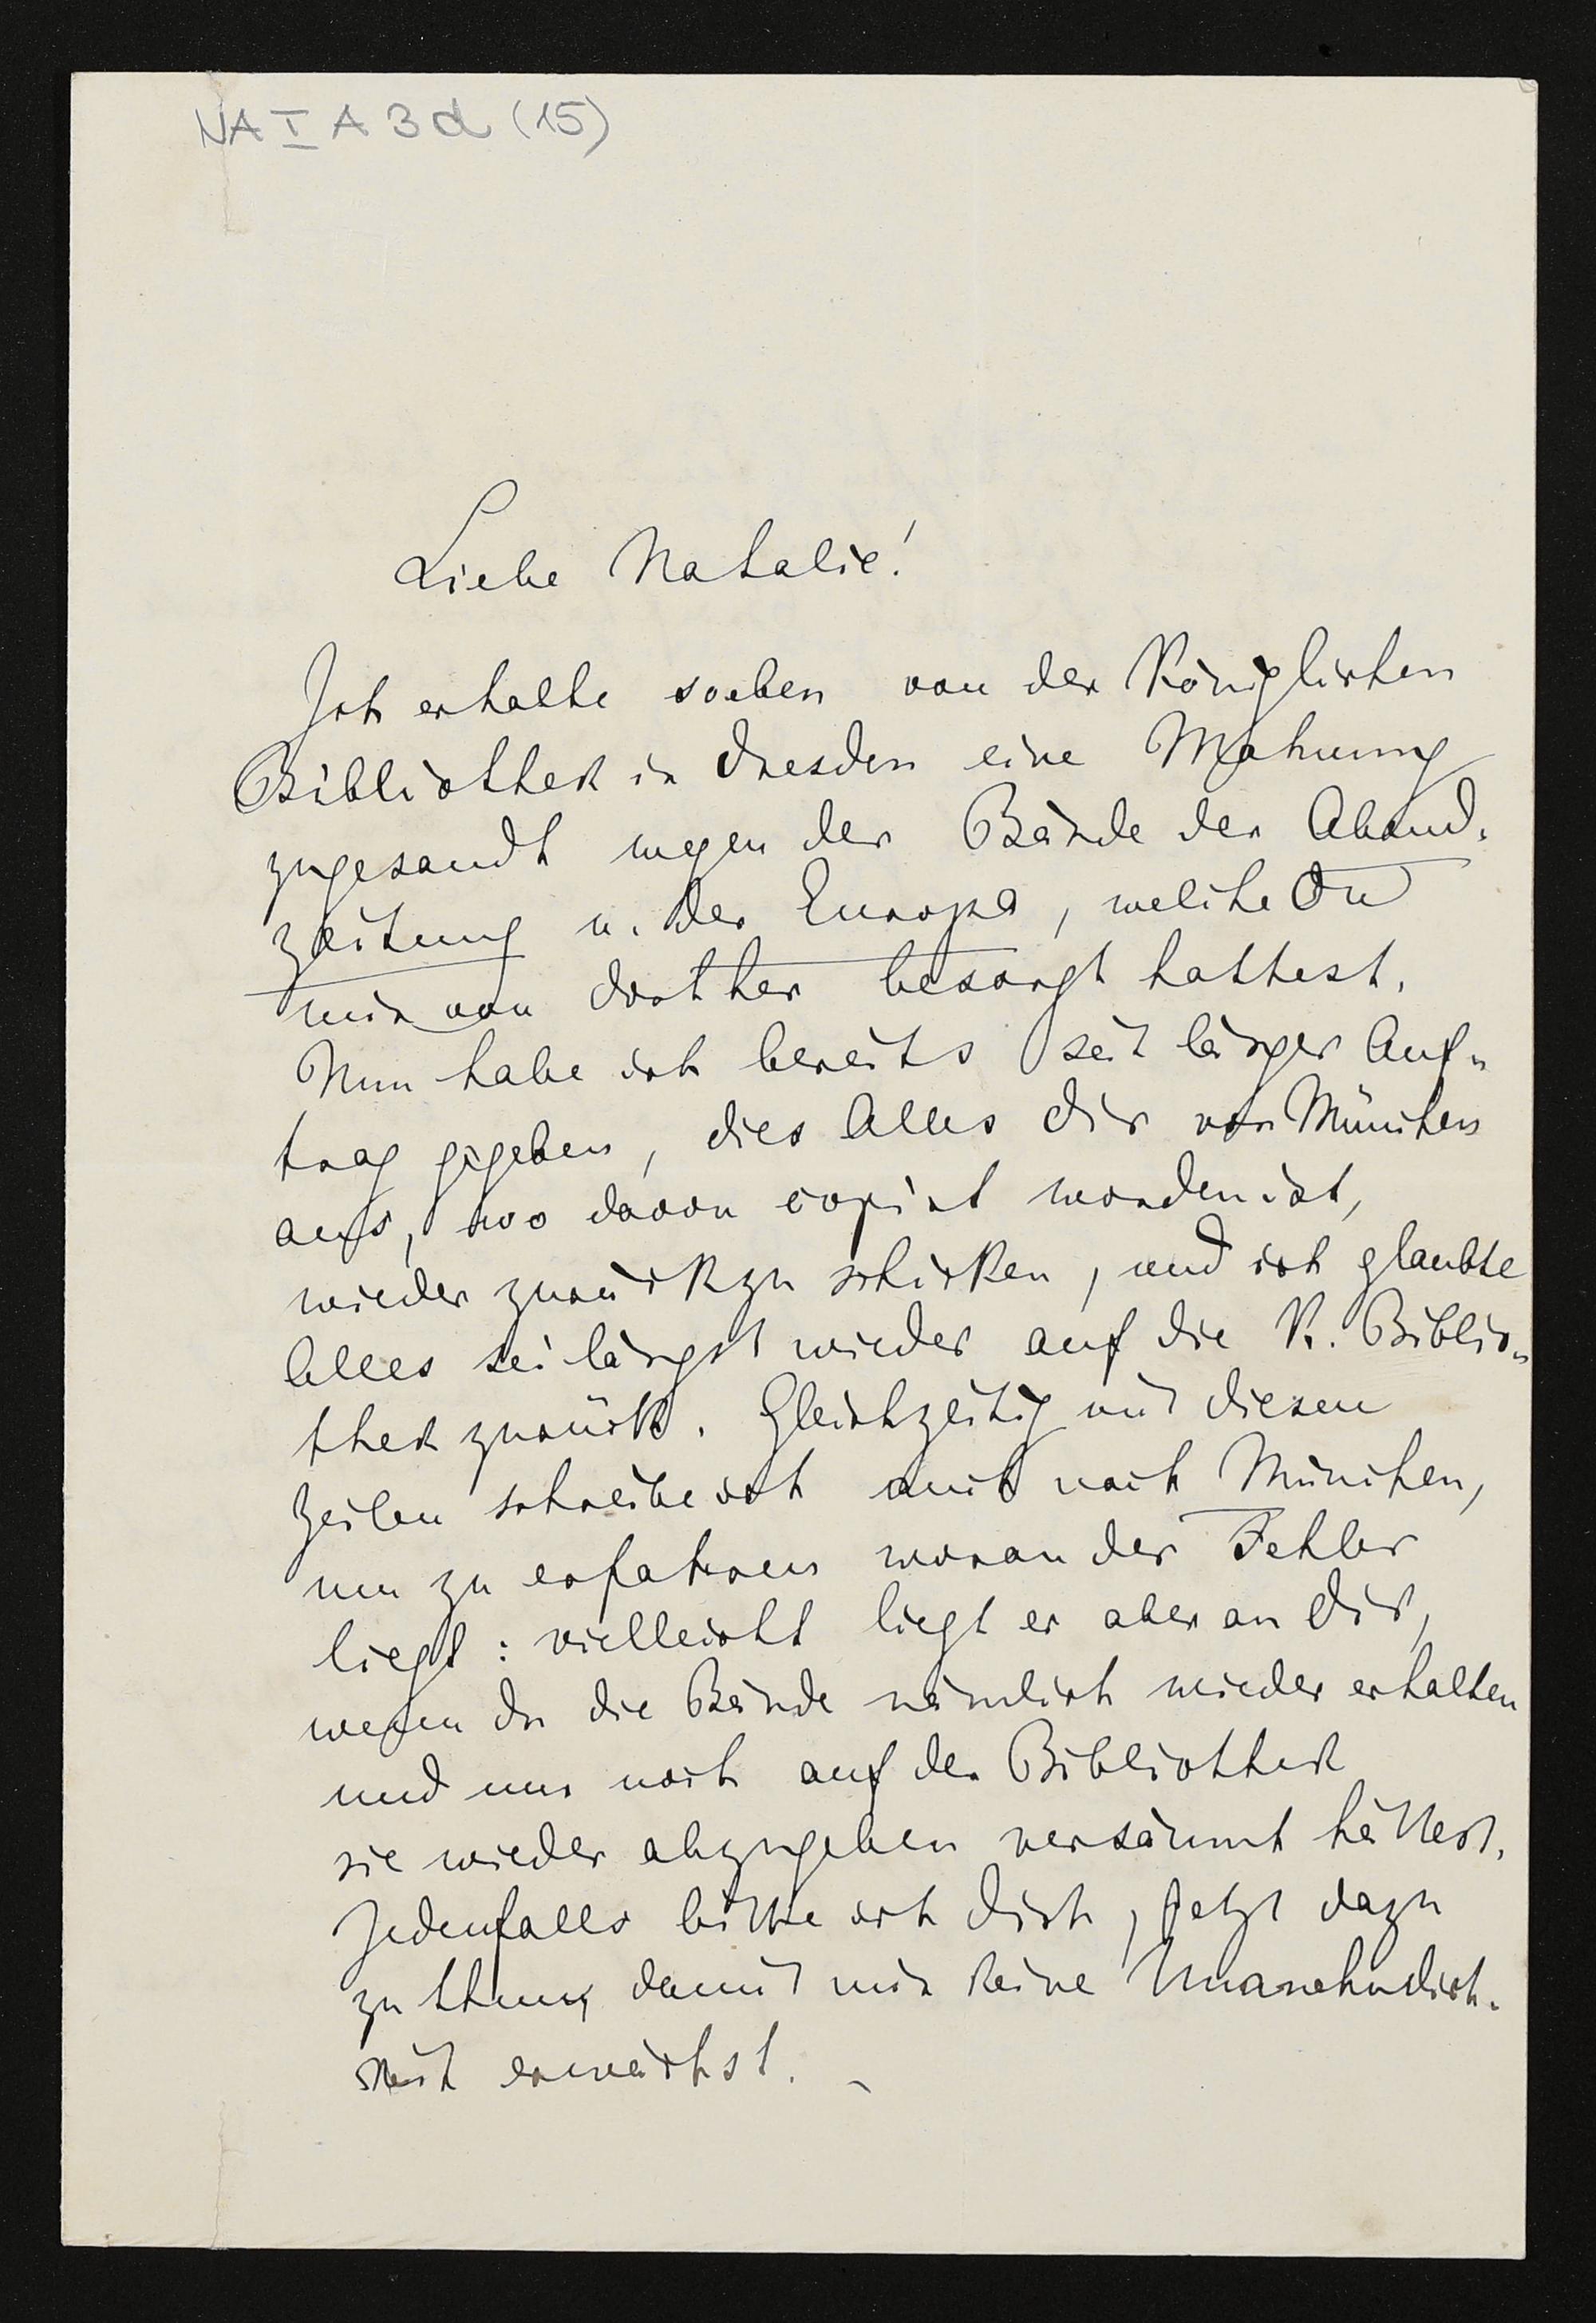 NA I A 3 d (15)
Liebe Natalie!
Ich erhalte soeben von der Königlichen
Bibliothek in Dresden eine Mahnung
zugesandt wegen der Bände der Abend-
zeitung u. der Europa, welche Du
mir von dorther besorgt hattest.
Nun habe ich bereits seit länger Auf-
trag gegeben, dies Alles Dir von München
aus, wo davon copirt worden ist,
wieder zurückzu schicken, und ich glaubte
Alles sei längst wieder auf die K. Biblio-
thek zurück. Gleichzeitig mit diesen
Zeilen schreibe ich auch nach München,
um zu erfahren woran der Fehler
liegt: vielleicht liegt er aber an Dir,
wenn du die Bände nämlich wieder erhalten
und nur noch auf der Bibliothek
sie wieder abzugeben versäumt hättest.
Jedenfalls bitte ich Dich, jetzt dazu
zu thun, damit mir keine Unannehmlich-
keit erwächst. -